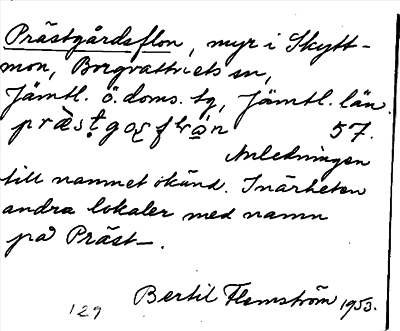 Prästgårdsflon, myr i Skytt-
mon, Borgvattnets sn,
Jämtl. ö. doms. tg, Jämtl. län.
57.
Anledningen
till namnet okänd. I närheten
andra lokaler med namn
på Präst-.
Bertil Flemström 1953.
129